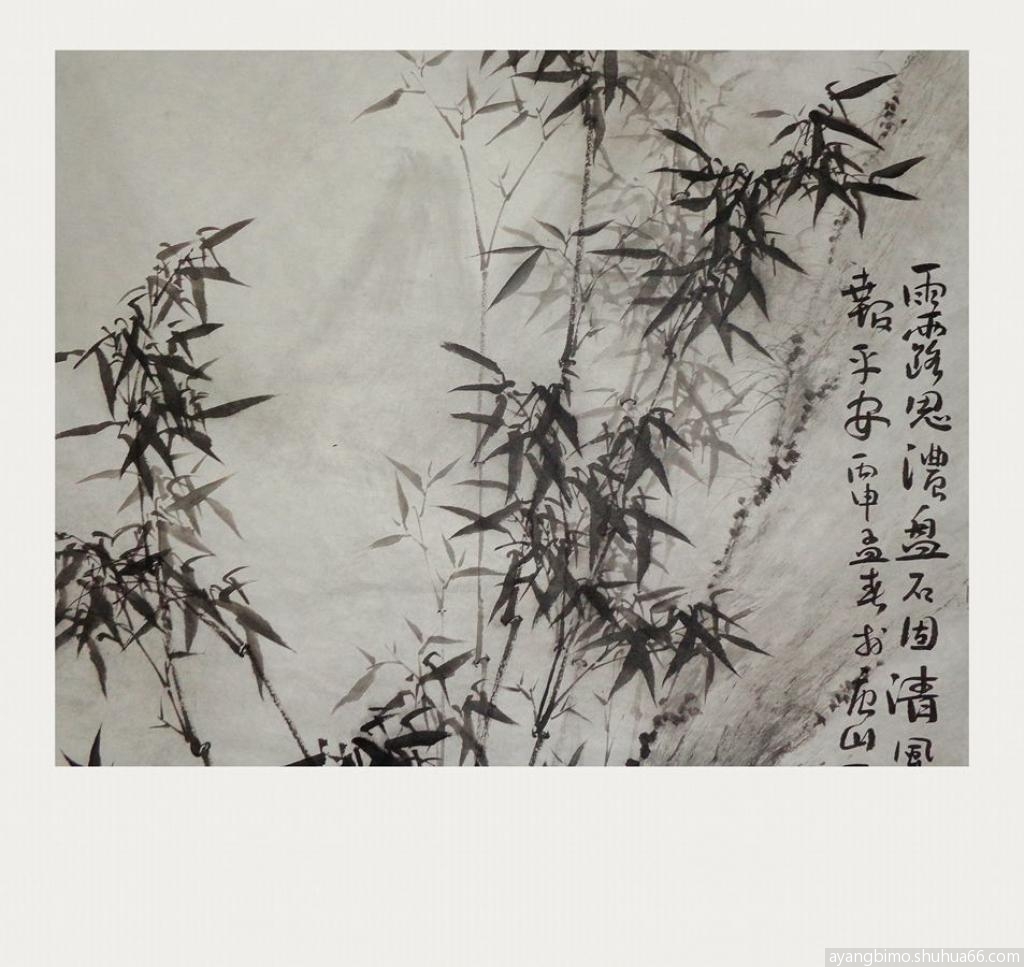 雨露恩濃盘石固清風
報平安丙申孟春於山
ayangbimo.shuhua66.com